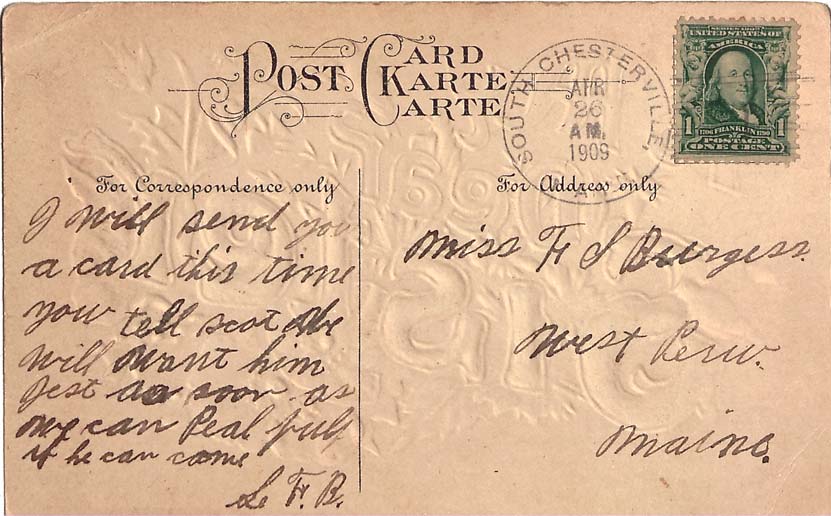 POST CARD
KARTE
CARTE
SOUTH CHESTERVILLE
APR
26
A.M.
1909
SERIES 1902
UNITED STATES OF
AMERICA
1 1706 FRANKLIN 1790 1
POSTAGE
ONE CENT
For Correspondence only
I will send you
a card this time
you tell scot we
will want him
Jest as soon as
we can Peal pulp
if he can come
F. B.
For Address only
Miss F S Burgess.
West Peru.
Maine.